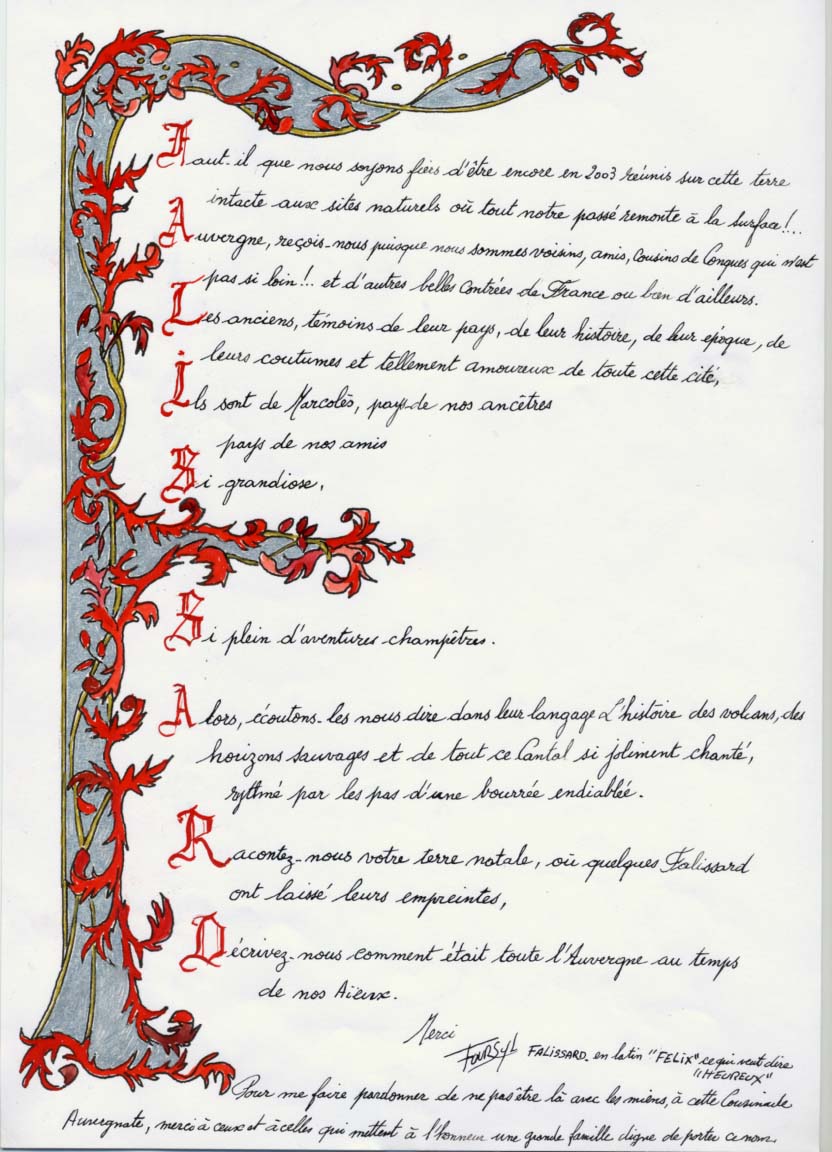 Faut-il que nous soyons fiers d'être encore en 2003 réunis sur cette terre
intacte aux sites naturels où tout notre passé remonte à la surface!...
Auvergne, reçois-nous puisque nous sommes voisins, amis, Cousins de Conques qui n'est
pas si loin!.. et d'autres belles Contrées de France ou bien d'ailleurs.
Les anciens, témoins de leur pays, de leur histoire, de leur époque, de
leurs coutumes et tellement amoureux de toute cette cité,
ils sont de Marcolès, pays de nos ancêtres
pays de nos amis
Si grandiose,
Si plein d'aventures champêtres.
Alors, écoutons-les nous dire dans leur langage L'histoire des volcans, des
horizons sauvages et de tout ce Cantal si joliment chanté,
rytmé par les pas d'une bourrée endiablée.
Racontez-nous votre terre natale, où quelques Falissard
ont laissé leurs empreintes,
Décrivez-nous comment était toute l'Auvergne au temps
de nos Aïeux.
Merci
FALISSARD. en latin "FELIX" ce qui veut dire
"HEUREUX"
Pour me faire pardonner de ne pas être là avec les miens, à cette Cousinade
Auvergnate, merci à ceux et à celles qui mettent à l'honneur une grande famille digne de porter ce nom.